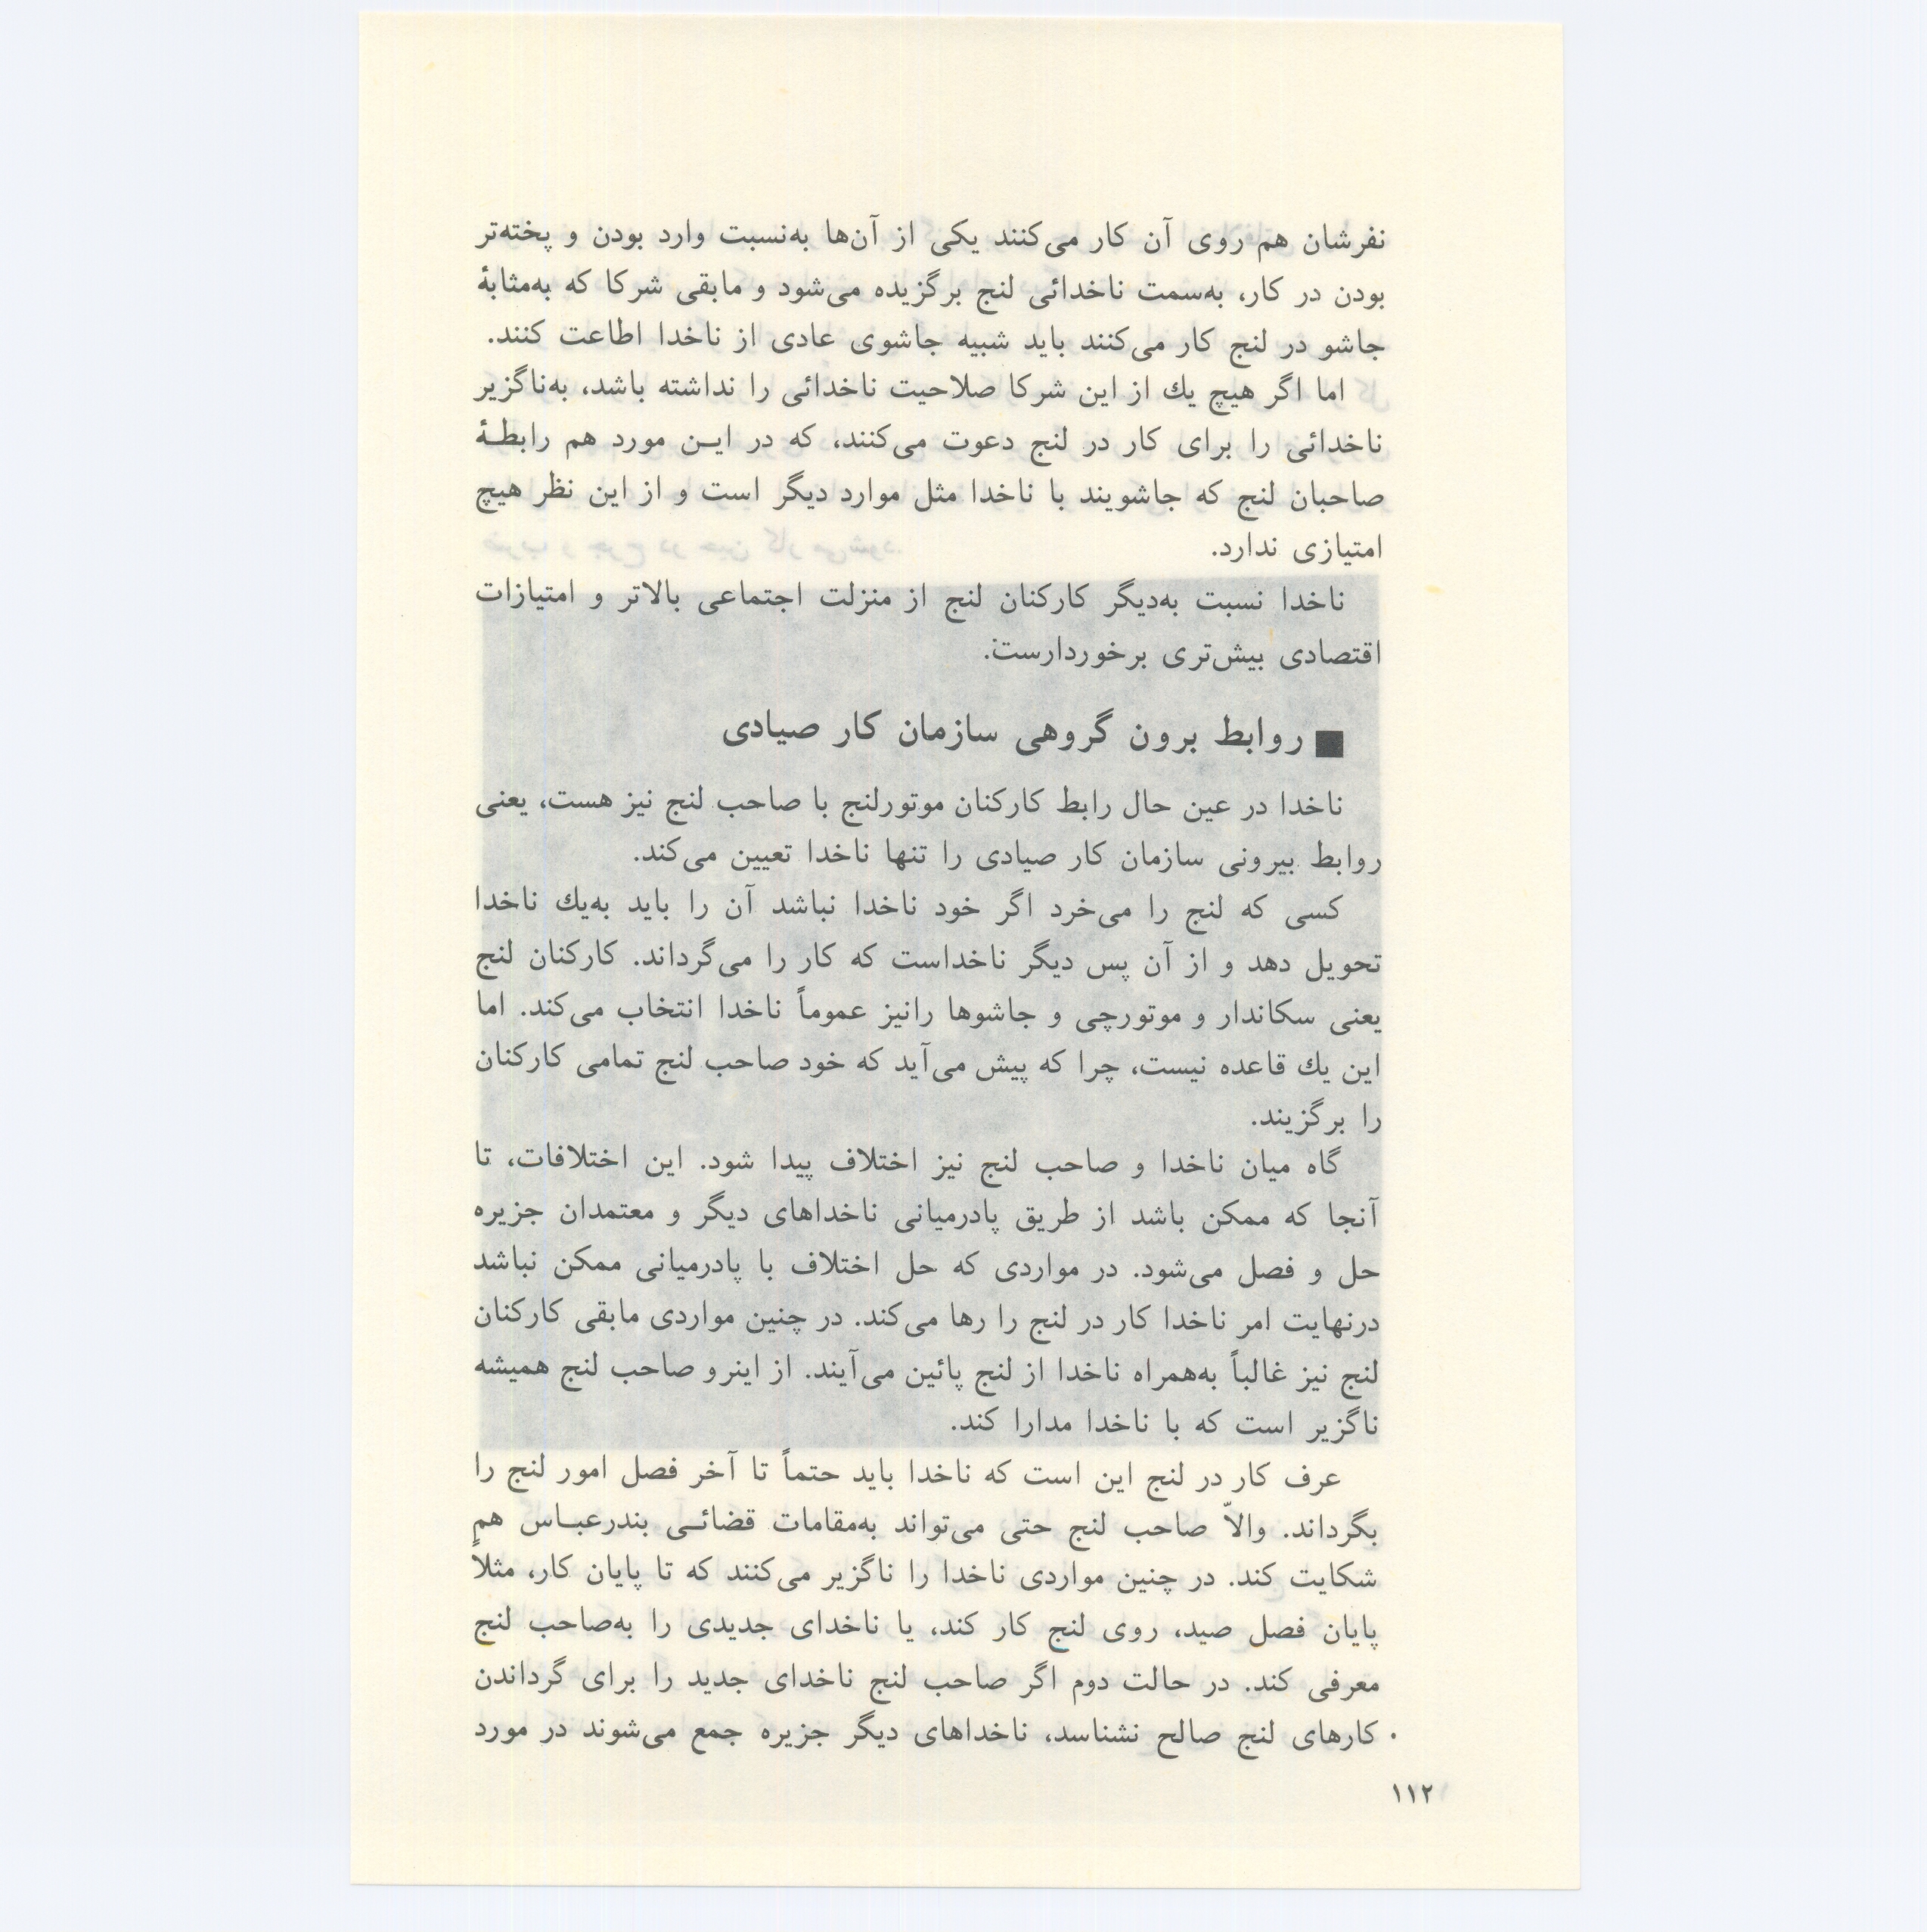 نفرشان هم روی آن کار می‌کنند یکی از آن‌ها به‌نسبت وارد بودن و پخته‌تر
بودن در کار، به‌سمت ناخدائی لنج برگزیده می‌شود و مابقی شرکا که به‌مثابهٔ
جاشو در لنج کار می‌کنند باید شبیه جاشوی عادی از ناخدا اطاعت کنند.
اما اگر هیچ یك از این شرکا صلاحیت ناخدائی را نداشته باشد، به‌ناگزیر
ناخدائی را برای کار در لنج دعوت می‌کنند، که در ایـن مورد هم رابطـهٔ
صاحبان لنج که جاشویند با ناخدا مثل موارد دیگر است و از این نظر هیچ
امتیازی ندارد.
ناخدا نسبت به‌دیگر کارکنان لنج از منزلت اجتماعی بالاتر و امتیازات
اقتصادی بیش‌تری برخوردارست.
■ روابط برون گروهی سازمان کار صیادی
ناخدا در عین حال رابط کارکنان موتورلنج با صاحب لنج نیز هست، یعنی
روابط بیرونی سازمان کار صیادی را تنها ناخدا تعیین می‌کند.
کسی که لنج را می‌خرد اگر خود ناخدا نباشد آن را باید به‌یك ناخدا
تحویل دهد و از آن پس دیگر ناخداست که کار را می‌گرداند. کارکنان لنج
یعنی سکاندار و موتورچی و جاشوها رانیز عموماً ناخدا انتخاب می‌کند. اما
این یك قاعده نیست، چرا که پیش می‌آید که خود صاحب لنج تمامی کارکنان
را برگزیند.
گاه میان ناخدا و صاحب لنج نیز اختلاف پیدا شود. این اختلافات، تا
آنجا که ممکن باشد از طریق پادرمیانی ناخداهای دیگر و معتمدان جزیره
حل و فصل می‌شود. در مواردی که حل اختلاف با پادرمیانی ممکن نباشد
درنهایت امر ناخدا کار در لنج را رها می‌کند. در چنین مواردی مابقی کارکنان
لنج نیز غالباً به‌همراه ناخدا از لنج پائین می‌آیند. از اینرو صاحب لنج همیشه
ناگزیر است که با ناخدا مدارا کند.
عرف کار در لنج این است که ناخدا باید حتماً تا آخر فصل امور لنج را
بگرداند. والاّ صاحب لنج حتی می‌تواند به‌مقامات قضائـی بندرعبـاس هم
شکایت کند. در چنین مواردی ناخدا را ناگزیر می‌کنند که تا پایان کار، مثلاً
پایان فصل صید، روی لنج کار کند، یا ناخدای جدیدی را به‌صاحب لنج
معرفی کند. در حالت دوم اگر صاحب لنج ناخدای جدید را برای گرداندن
کارهای لنج صالح نشناسد، ناخداهای دیگر جزیره جمع می‌شوند در مورد
۱۱۲